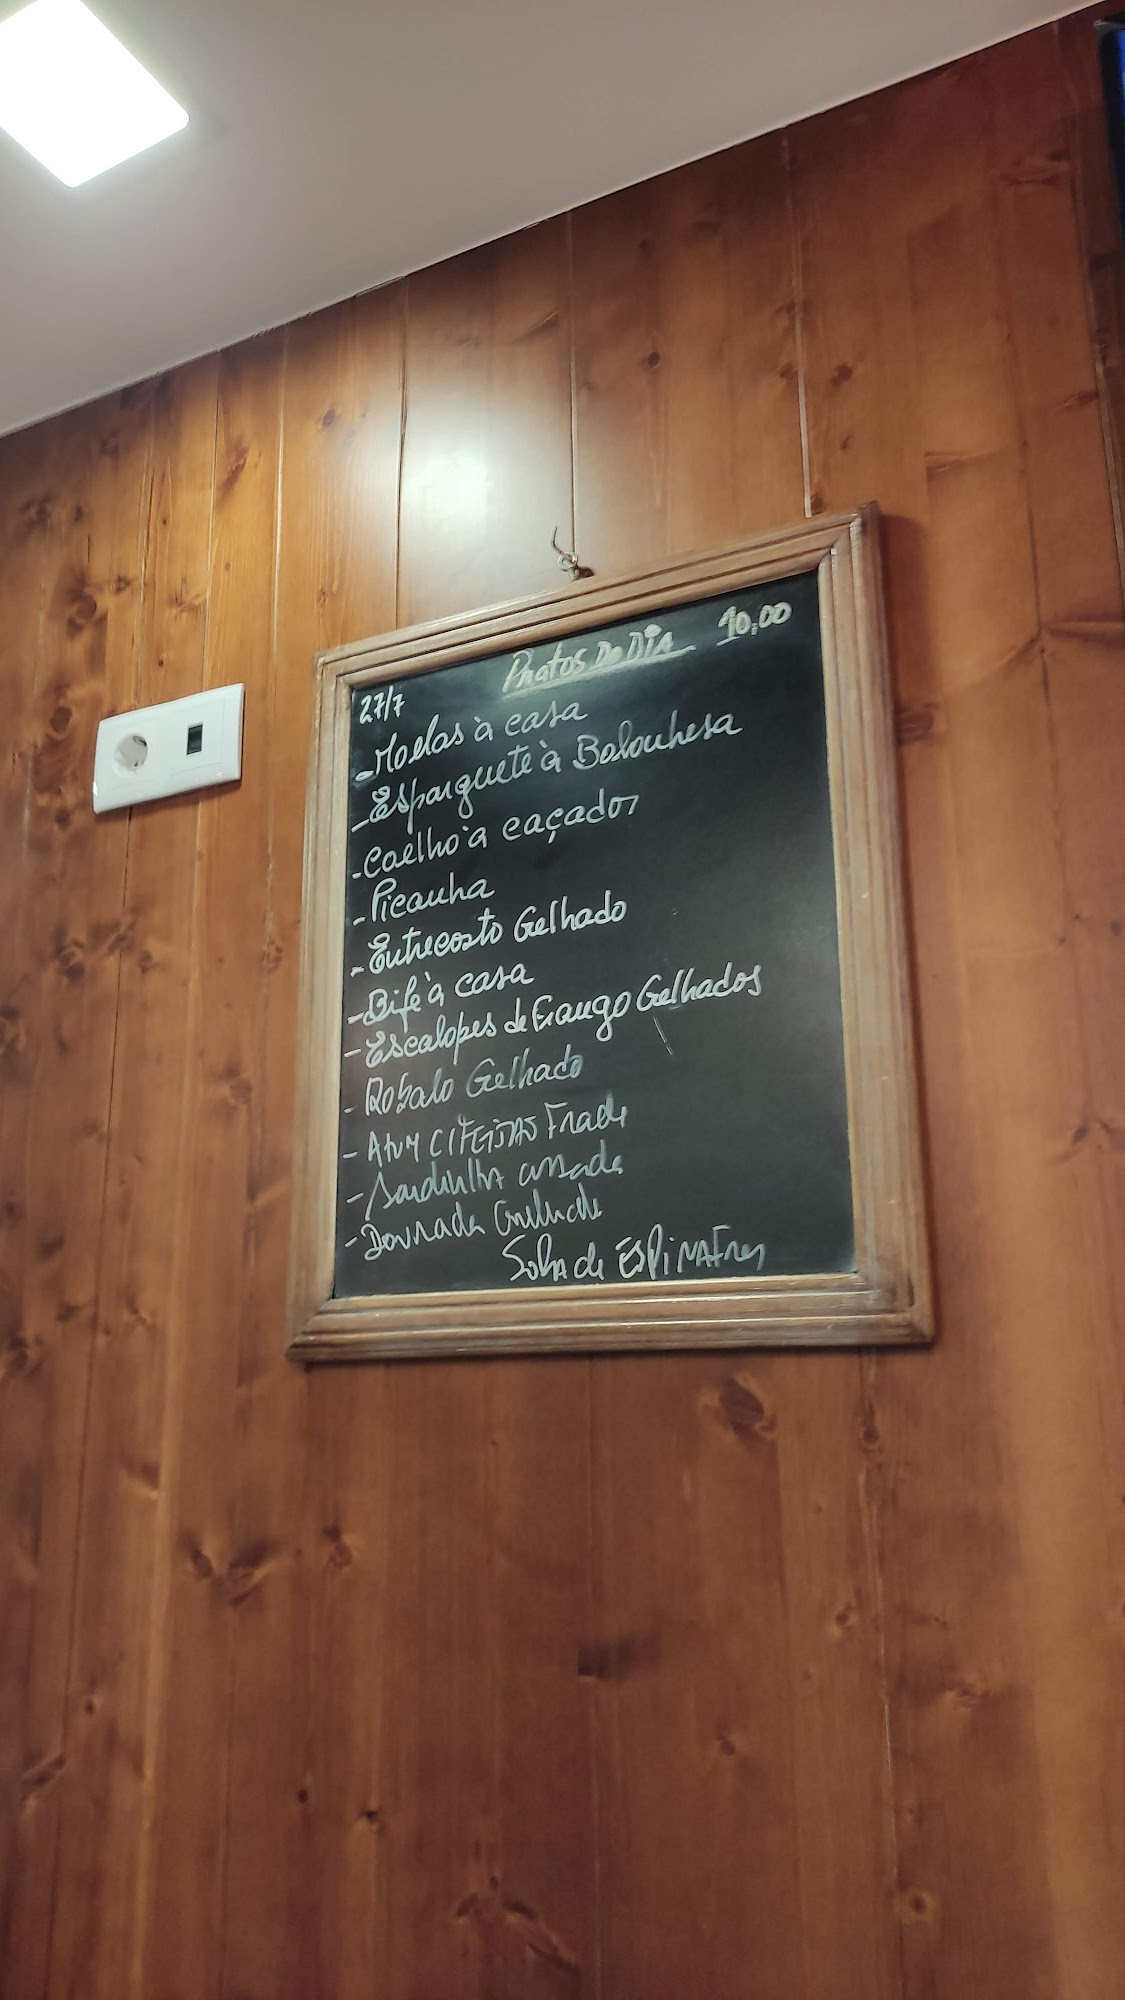 Pratos do DIA 10,00
27/7
- Moelas à casa
- Esparguete à Bolonhesa
- Coelho à caçador
- Picanha
- Entrecosto Gelhado
- Bife à casa
- Escalopes de Frango Gelhados
- Robalo Gelhado
- Atum C/ Feijão Frade
- Sardinha assada
- Dourada Grelhada
Sopa de ESPINAFres